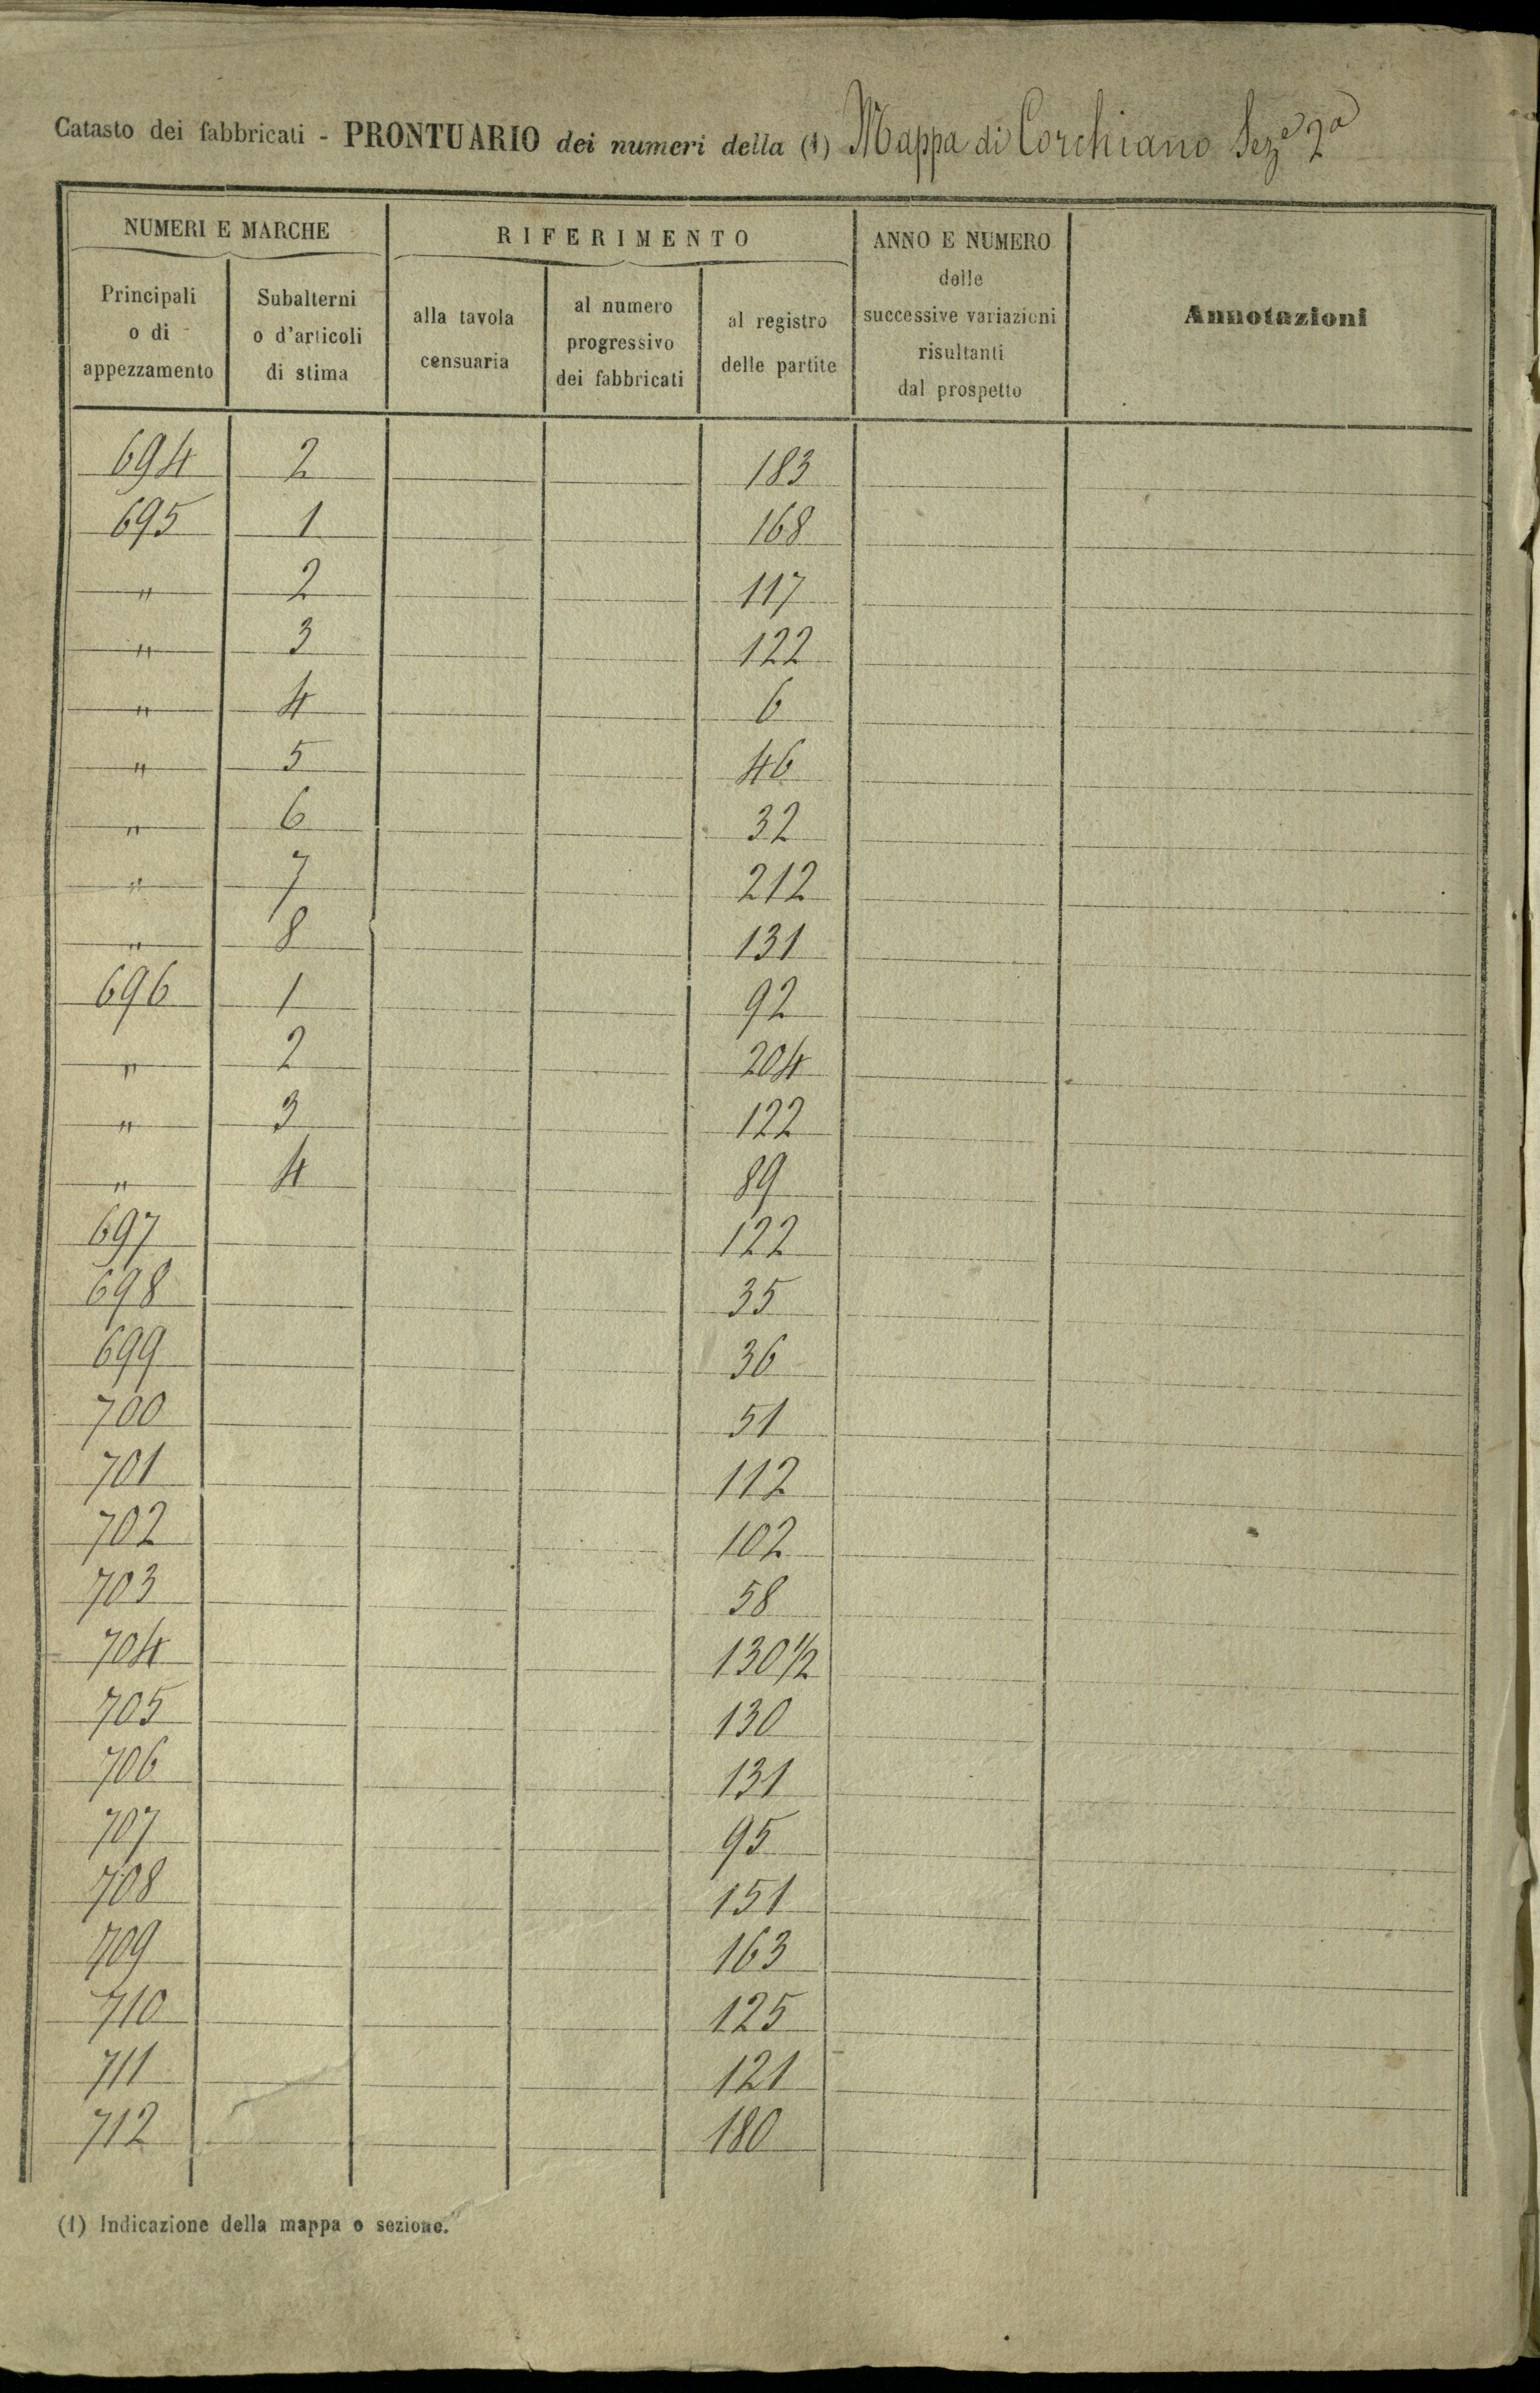 Catasto dei fabbricati - PRONTUARIO dei numeri della (1) Mappa di Corchiano Seze 2a
NUMERI E MARCHE
RIFERIMENTO
ANNO E NUMERO
delle
successive variazioni
risultanti
dal prospetto
Annotazioni
Principali
o di
appezzamento
Subalterni
o d'articoli
di stima
alla tavola
censuaria
al numero
progressivo
dei fabbricati
al registro
delle partite
694 2 183
695 1 168
" 2 117
" 3 122
" 4 6
" 5 46
" 6 32
" 7 212
" 8 131
696 1 92
" 2 204
" 3 122
" 4 89
697 122
698 35
699 36
700 51
701 112
702 102
703 58
704 130 1/2
705 130
706 131
707 95
708 151
709 163
710 125
711 121
712 180
(1) Indicazione della mappa o sezione.